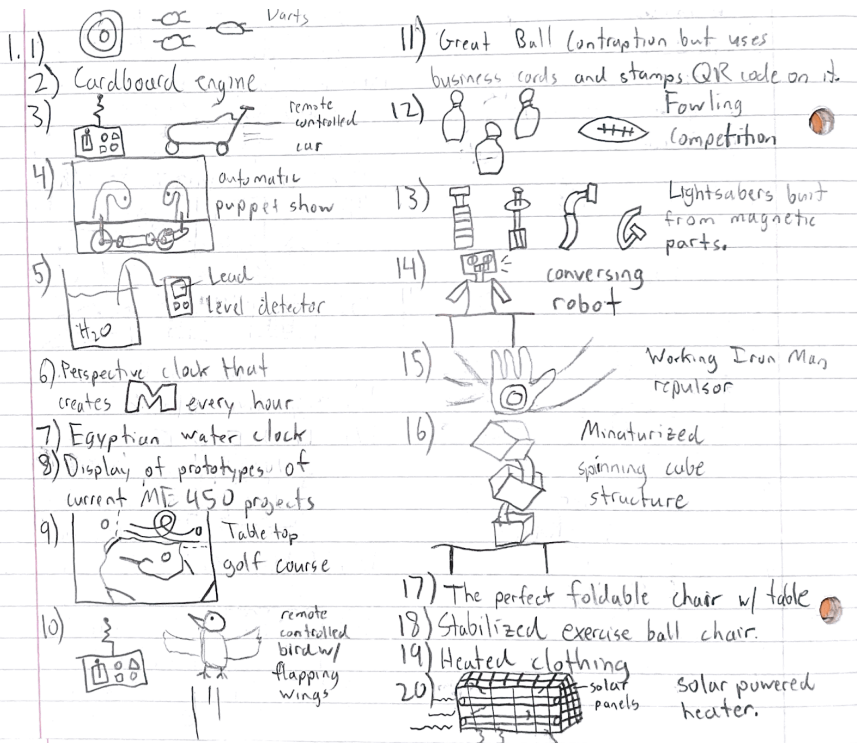 1. 1) Darts
2) Cardboard engine
3) remote
controlled
car
4) automatic
puppet show
5) Lead
level detector
H2O
6) Perspective clock that
creates M every hour
7) Egyptian water clock
8) Display of prototypes of
current ME 450 projects
9) Table top
golf course
10) remote
controlled
bird w/
flapping
wings
11) Great Ball Contraption but uses
business cards and stamps QR code on it.
12) Fowling
competition
13) Lightsabers built
from magnetic
parts.
14) conversing
robot
15) Working Iron Man
repulsor
16) Minaturized
spinning cube
structure
17) The perfect foldable chair w/ table
18) Stabilized exercise ball chair.
19) Heated clothing
20) solar
panels
solar powered
heater.